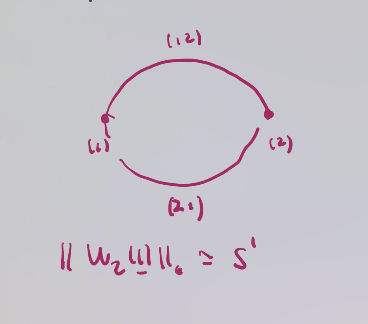 (12)
(1)
(2)
(21)
|| W₂(1)||. ≃ S¹